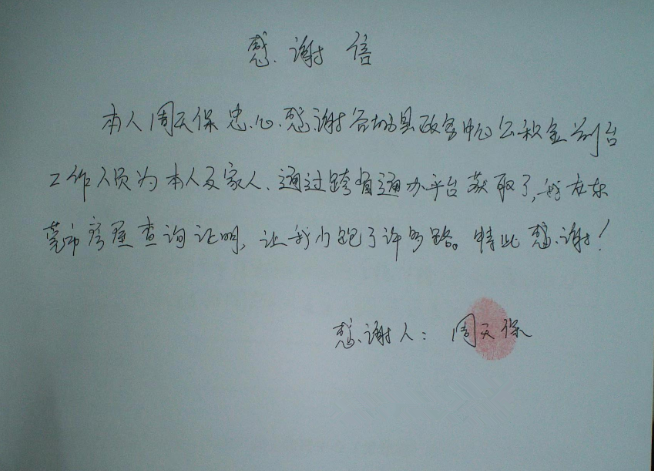 感谢信
本人周天保忠心感谢谷城县政务中心公积金前台
工作人员为本人及家人、通过跨省通办平台获取了，我在东
莞市房屋查询证明，让我少跑了许多路。特此感谢！
感谢人：周天保